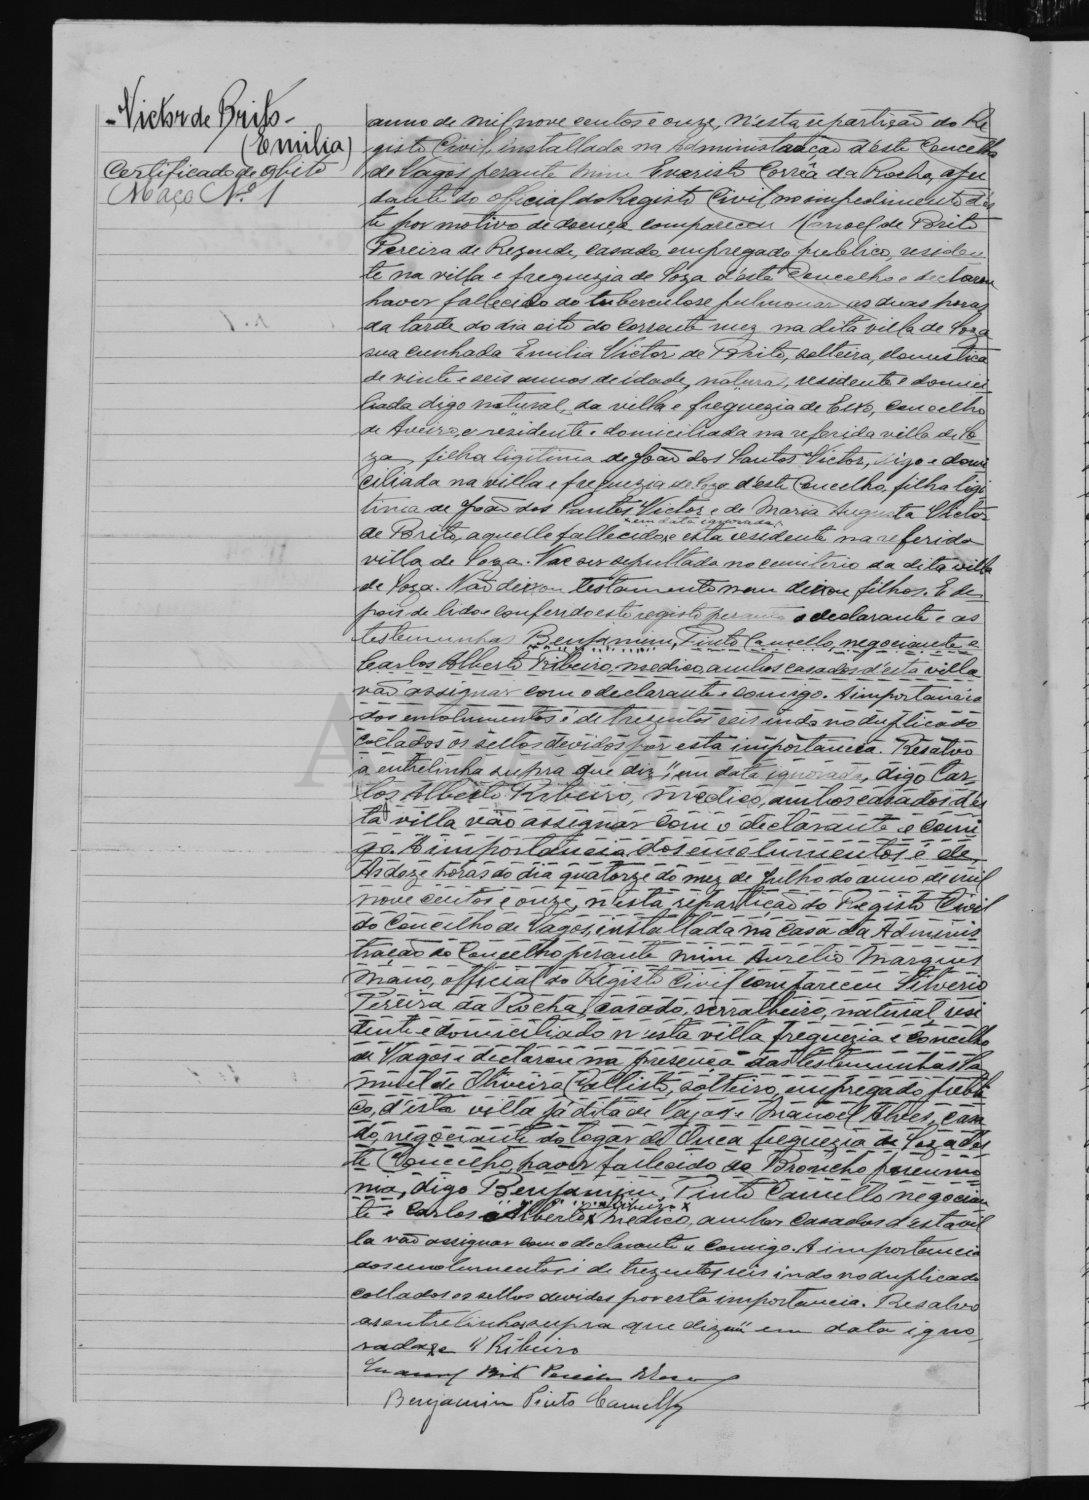 - Victor de Brito -
(Emilia)
Certificado de obito
Maço Nº 1
anno de mil nove centos e onze, n'esta repartição do Re
gisto Civil installada na administração d'este Concelho
de Vagos perante mim Evaristo Corrêa da Rocha, aju
dante do official do Registo Civil no impedimento d'es
te por motivo de doença compareceu Manoel de Brito
Pereira de Rezende, casado, empregado publico, residen
te na villa e freguezia de Soza d'este Concelho e declarou
haver fallecido de tuberculose pulmonar as duas horas
da tarde do dia oito do corrente mez na dita villa de Soza
sua cunhada Emilia Victor de Brito, solteira, domestica
de vinte e seis annos de idade, natural, residente e domici
liada digo natural, da villa e freguezia de Eixo, concelho
de Aveiro, e residente e domiciliada na referida villa de So
za, filha ligitima de João dos Santos Victor, digo e domi
ciliada na villa e freguezia de Soza d'este Concelho, filha ligi
tima de João dos Santos Victor e de Maria Augusta Victor
em data ignorada
de Brito, aquelle fallecido e esta residente na referida
villa de Soza. Vae ser sepultada no cemiterio da dita villa
de Soza. Não deixou testamento nem deixou filhos. E de
pois de lido e conferido este registo perante o declarante e as
testemunhas Benjamim Pinto Camello, negociante e
Carlos Alberto Ribeiro, medico, ambos casados d'esta villa
vão assignar com o declarante e comigo. A importancia
dos emolumentos é de trezentos reis indo no duplicado
collados os sellos devidos por esta importancia. Resalvo
a entrelinha supra que diz "em data ignorada, digo Car-
los Alberto Ribeiro, medico, ambos casados d'es
ta villa vão assignar com o declarante e comi
go. A importancia dos emolumentos é de,
As doze horas do dia quatorze do mez de Julho do anno de mil
nove centos e onze, n'esta repartição do Registo Civil
do Concelho de Vagos, installada na casa da Adminis
tração do Concelho perante mim Aurelio Marques
Mano, official do Registo Civil compareceu Silverio
Pereira da Rocha, casado, serralheiro, natural, resi
dente e domiciliado n'esta villa freguezia e concelho
de Vagos e declarou na presença das testemunhas Sa
muel de Oliveira Callisto, solteiro, empregado publi
co, d'esta villa já dita de Vagos e Manoel Alves, casa
do, negociante do logar de Ouca freguezia de Soza d'es
te Concelho, haver fallecido de Broncho pneumo
nia, digo Benjamim Pinto Camello negocian
Ribeiro
te e Carlos Alberto medico, ambos casados d'esta vil
la vão assignar com o declarante e comigo. A importancia
dos emolumentos é de trezentos reis indo no duplicado
collados os sellos devidos por esta importancia. Resalvo
as entrelinhas supra que dizem "em data igno
rada, e "Ribeiro
Brito Pereira
Benjamim Pinto Camello